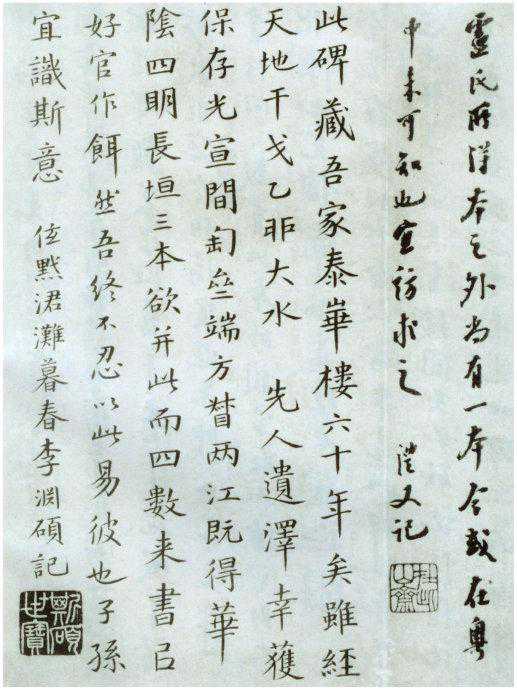 盧氏所得本之外尚有一本今或在粵
中未可知也宜訪求之 澧又記
此碑藏吾家泰崋樓六十年矣雖經
天地干戈乙卯大水 先人遺澤幸獲
保存光宣間匋齋端方督两江既得華
陰四明長垣三本欲并此而四數来書㠯
好官作餌然吾終不忍以此易彼也子孫
宜識斯意 伭黓涒灘暮春李淵碩記
碩世寶